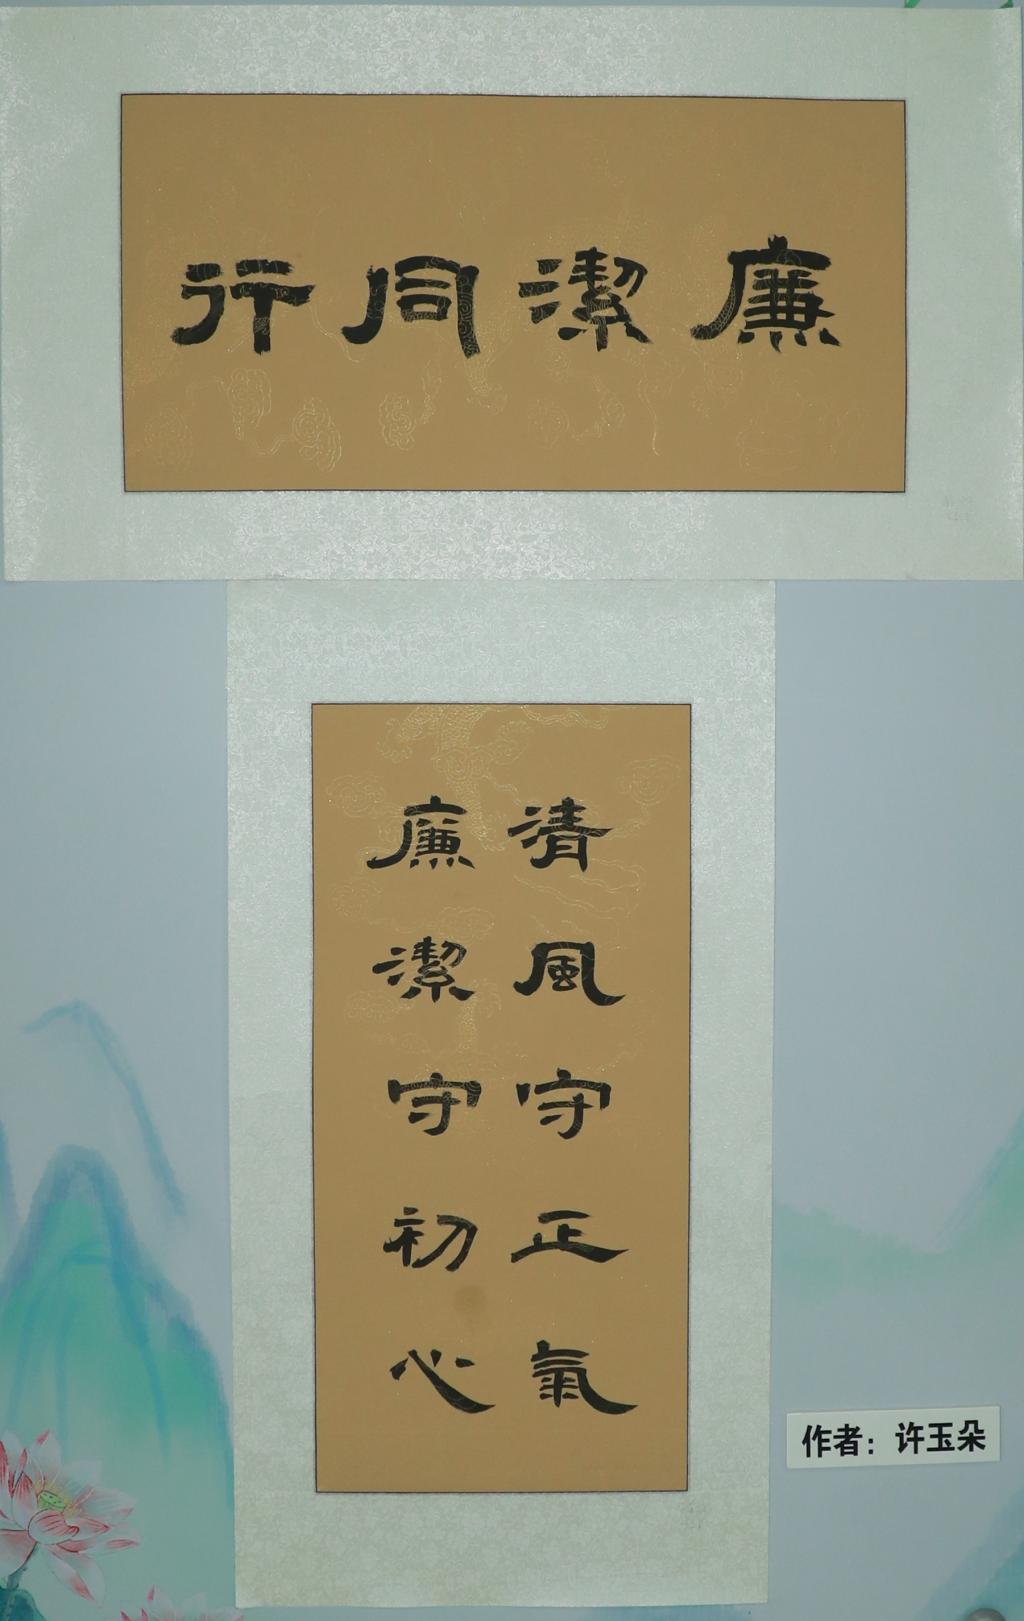 廉潔同行
清風守正氣
廉潔守初心
作者：许玉朵